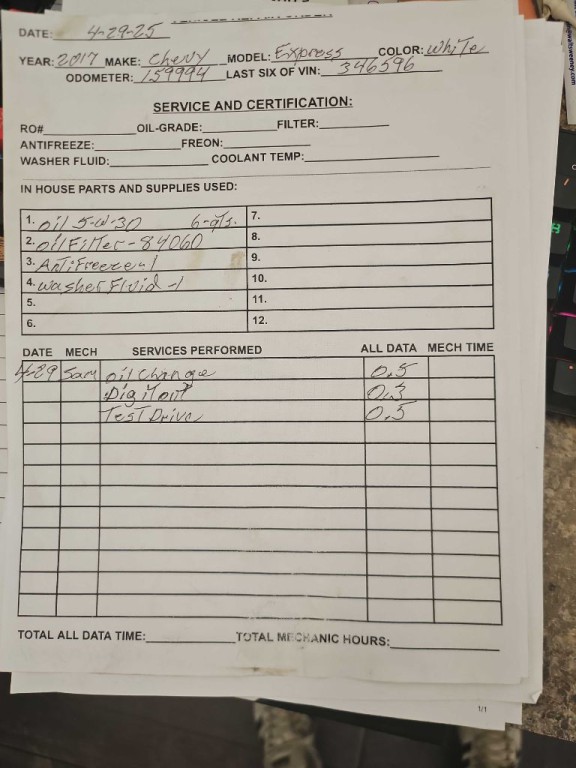 DATE: 4-29-25
YEAR: 2017 MAKE: Chevy MODEL: Express COLOR: White
ODOMETER: 159994 LAST SIX OF VIN: 346596
SERVICE AND CERTIFICATION:
RO# OIL-GRADE: FILTER:
ANTIFREEZE: FREON:
WASHER FLUID: COOLANT TEMP:
IN HOUSE PARTS AND SUPPLIES USED:
1. oil 5-w-30 6-qts. 7.
2. oil Filter - 84060 8.
3. Antifreeze-1 9.
4. washer Fluid -1 10.
5. 11.
6. 12.
DATE MECH SERVICES PERFORMED ALL DATA MECH TIME
4-29 Sam oil Change 0.5
Dig it out 0.3
Test Drive 0.5
TOTAL ALL DATA TIME: TOTAL MECHANIC HOURS:
1/1